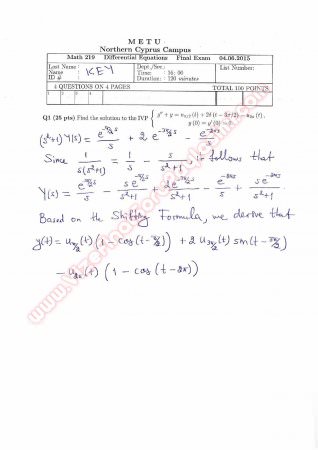 M E T U
Northern Cyprus Campus
Math 219 Differential Equations Final Exam 04.06.2015
Last Name : Dept./Sec.: List Number:
Name : KEY Time : 16: 00
ID # : Duration : 120 minutes
4 QUESTIONS ON 4 PAGES TOTAL 100 POINTS
1 2 3 4
Q1 (25 pts) Find the solution to the IVP { y'' + y = u_{π/2}(t) + 2δ(t − 3π/2) − u_{2π}(t),
y(0) = y'(0) = 0.
(s²+1) Y(s) = e^{-π/2 s}/s + 2 e^{-3π/2 s} − e^{-2πs}/s
Since 1/(s(s²+1)) = 1/s − s/(s²+1), it follows that
Y(s) = e^{-π/2 s}/s − s e^{-π/2 s}/(s²+1) + 2e^{-3π/2 s}/(s²+1) − e^{-2πs}/s + s e^{-2πs}/(s²+1)
Based on the Shifting Formula, we derive that
y(t) = u_{π/2}(t) (1 − cos(t − π/2)) + 2 u_{3π/2}(t) sin(t − 3π/2)
− u_{2π}(t) (1 − cos(t − 2π))